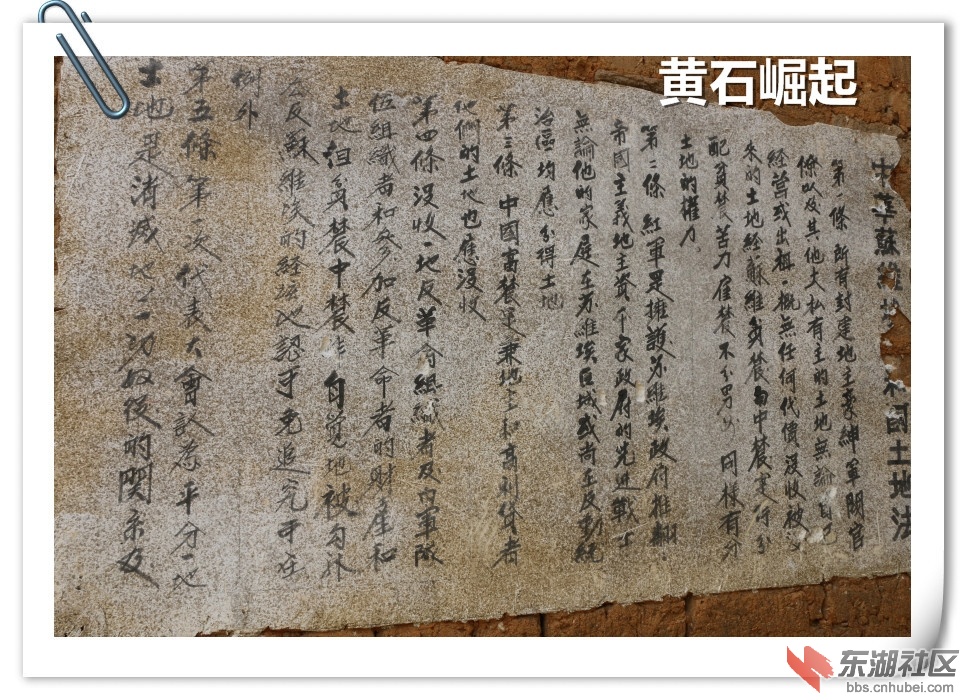 黄石崛起
中華蘇維 和國土地法
第一條 所有封建地主豪紳軍閥官
條以及其他大私有主的土地無論自己
經營或出租一概無任何代價沒收被沒
來的土地經蘇維貧農与中農實行分
配貧農苦力雇農不分男女同樣有分
土地的權力。
第二條 紅軍是擁護苏維埃政府推翻
帝國主義地主資 家政府的先進戰士
無論他的家屋在苏維埃區域或尚在反動統
治區均應分得土地
第三條 中國富農是兼地主和高利貸者
他們的土地也應沒收
第四條沒收一地反革命組織者及白軍隊
伍組織者和參加反革命者的財產和
土地但貧農中農 自覺地被勾 
去反蘇維埃的經 地認可免追究可在
例外
第五條第一次代表大會認為平分一地
土地是消滅地 一切奴役的関系及
东湖社区
bbs.cnhubei.com